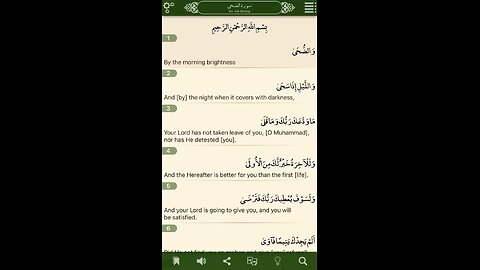 سورة الضحى
93: Ad-Dhuha
بِسْمِ اللَّهِ الرَّحْمَٰنِ الرَّحِيمِ
1
وَالضُّحَىٰ
By the morning brightness
2
وَاللَّيْلِ إِذَا سَجَىٰ
And [by] the night when it covers with darkness,
3
مَا وَدَّعَكَ رَبُّكَ وَمَا قَلَىٰ
Your Lord has not taken leave of you, [O Muhammad],
nor has He detested [you].
4
وَلَلْآخِرَةُ خَيْرٌ لَّكَ مِنَ الْأُولَىٰ
And the Hereafter is better for you than the first [life].
5
وَلَسَوْفَ يُعْطِيكَ رَبُّكَ فَتَرْضَىٰ
And your Lord is going to give you, and you will
be satisfied.
6
أَلَمْ يَجِدْكَ يَتِيمًا فَآوَىٰ